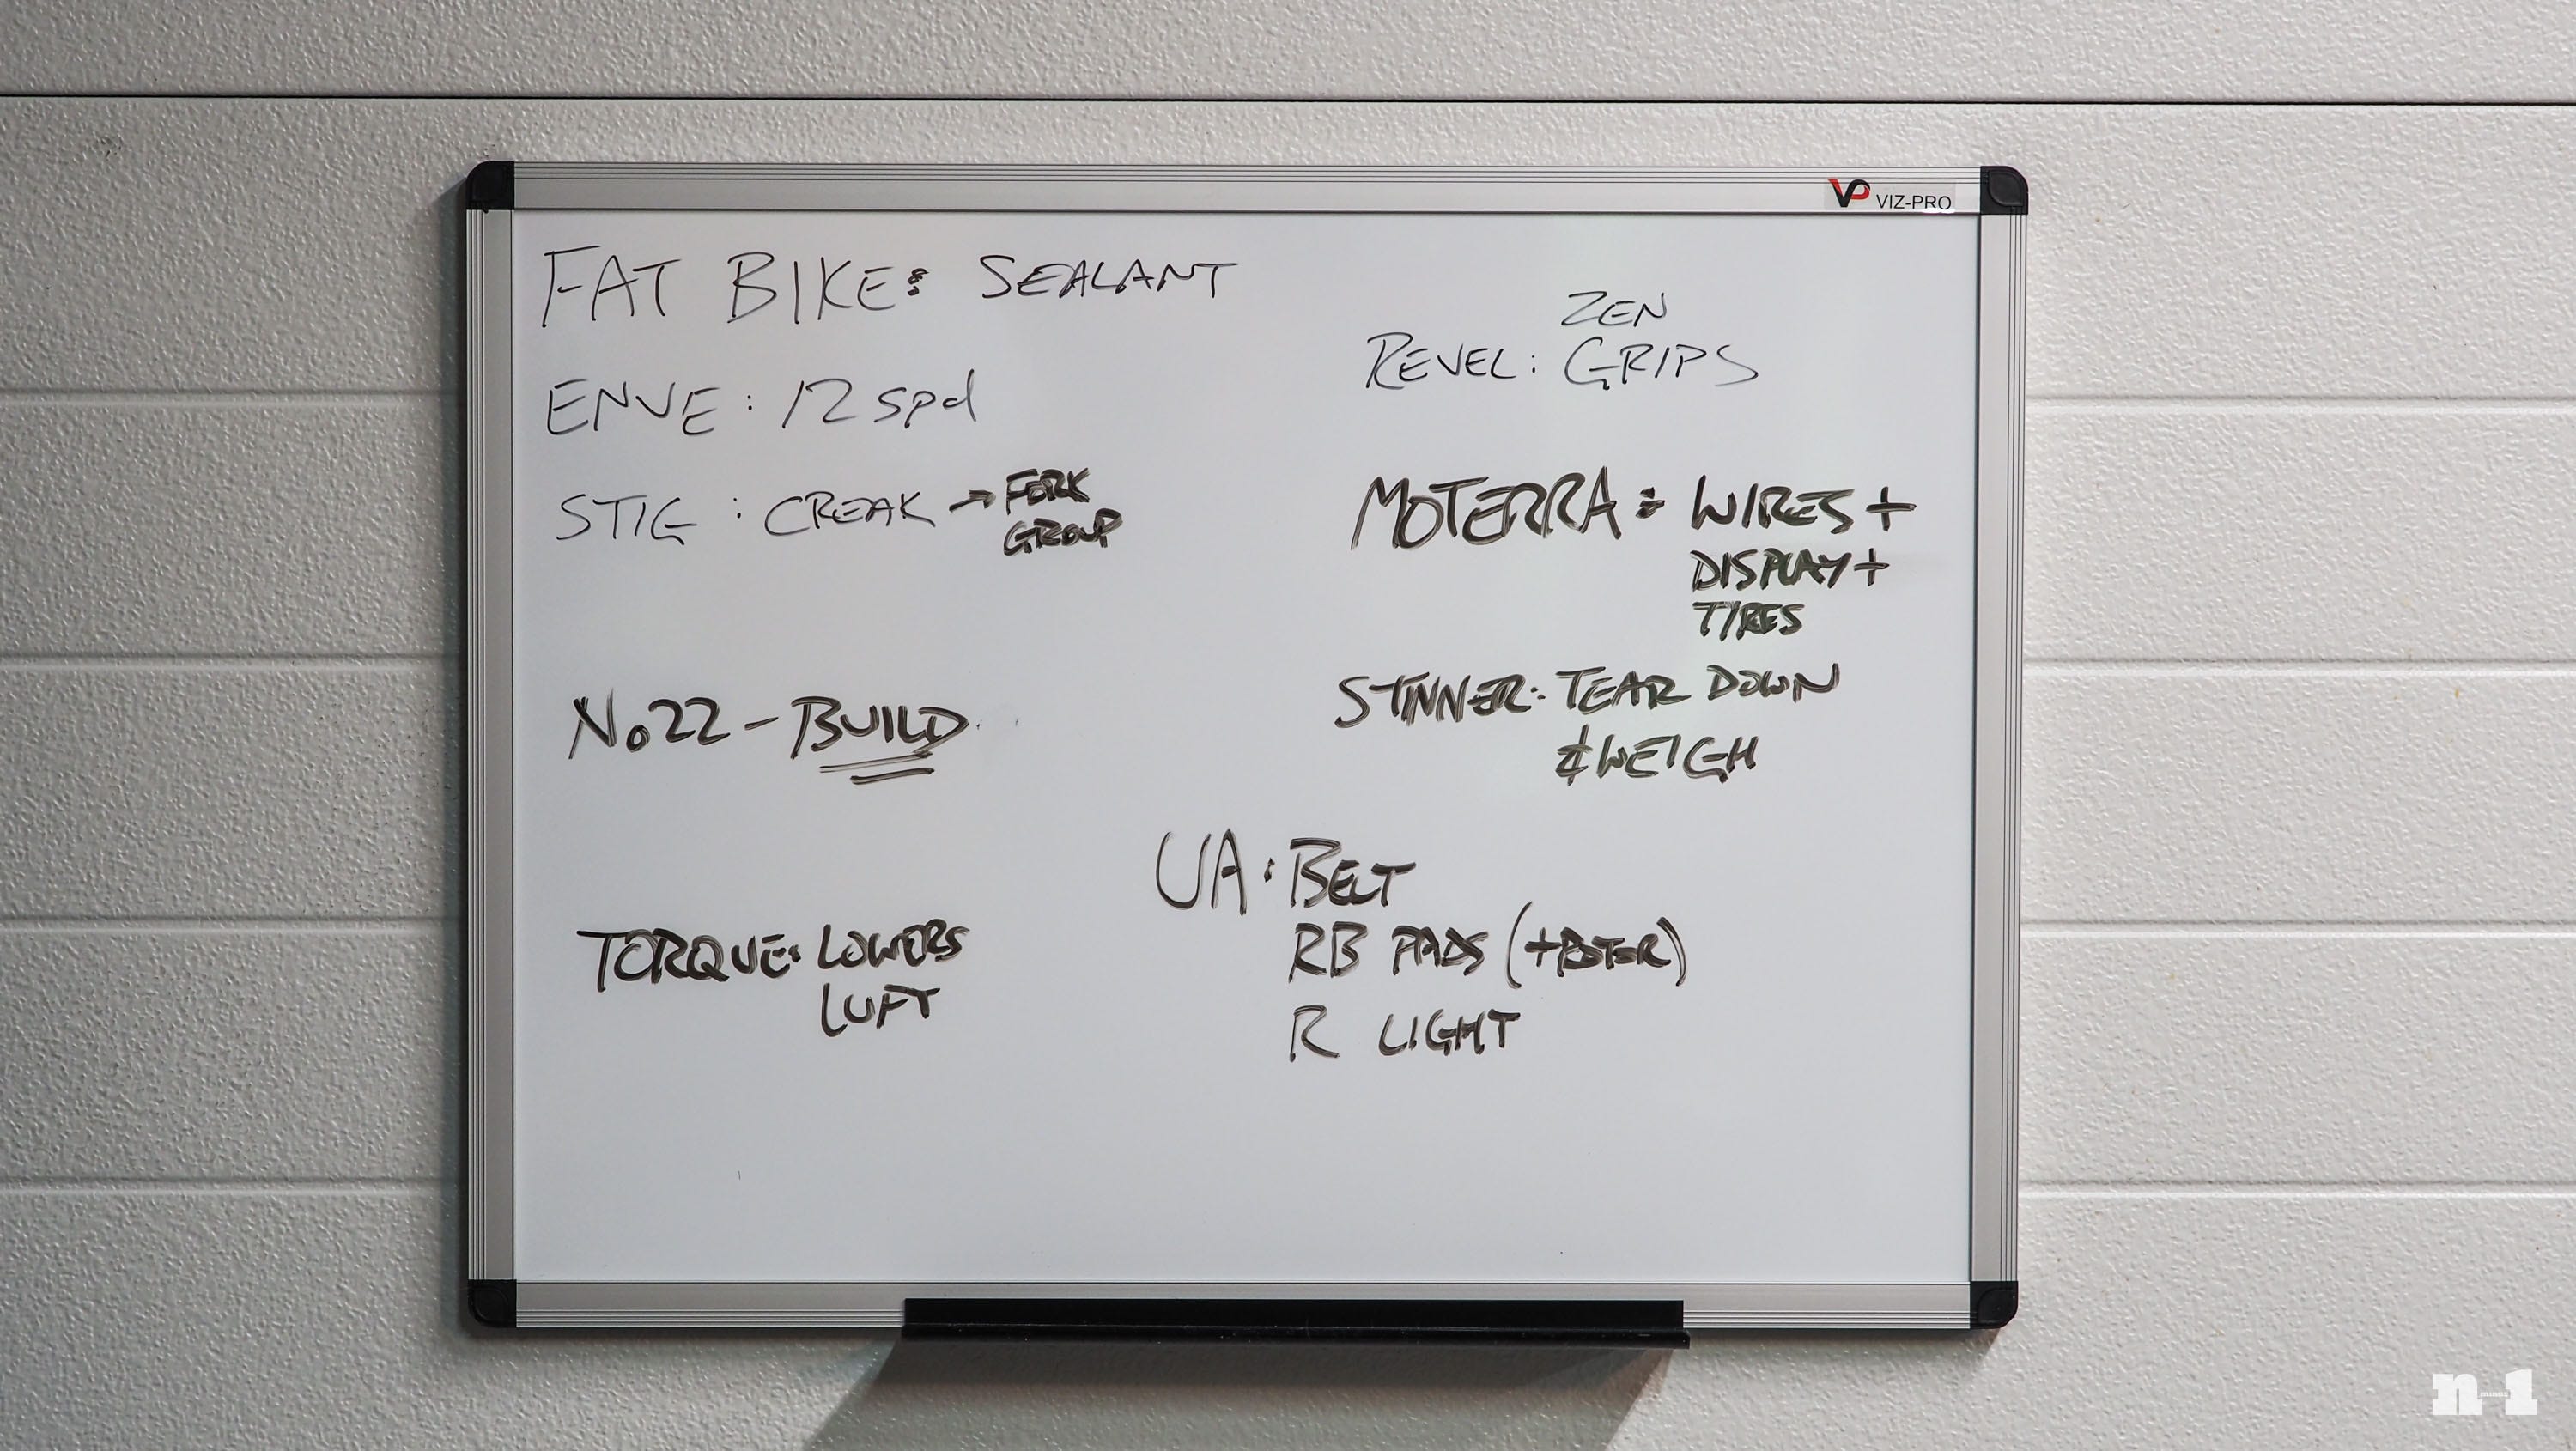 VP VIZ-PRO
FAT BIKE: SEALANT
ENVE: 12 spd
STIG: CREAK → FORK
GROUP
No22 - BUILD
TORQUE: LOWERS
LUFT
ZEN
REVEL: GRIPS
MOTERRA: WIRES +
DISPLAY +
TIRES
STINNER: TEAR DOWN
& WEIGH
UA: BELT
RB PADS
R LIGHT
n minus 1